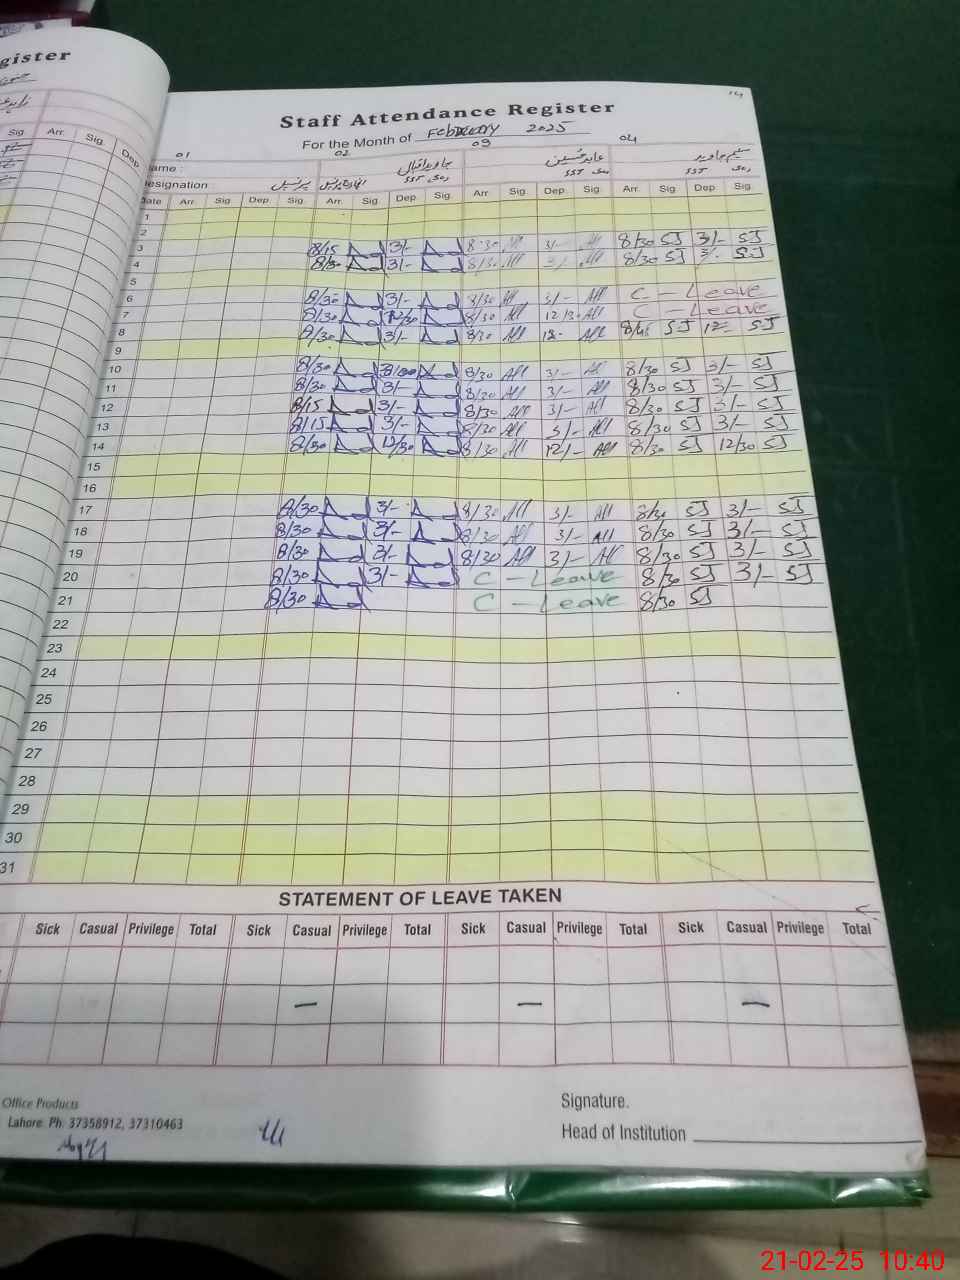 gister
14
Staff Attendance Register
For the Month of February 2025
01 02 03 04
ame : جاوید اقبال عابد حسین سلیم جاوید
esignation : پرنسپل SST SST SST
Arr. Sig. Dep
Date Arr. Sig Dep Sig. Arr. Sig. Dep Sig. Arr. Sig. Dep Sig. Arr. Sig. Dep Sig.
1
2
3 8/15 3/- 8/30 All 3/- All 8/30 SJ 3/- SJ
4 8/30 3/- 8/30 All 3/- All 8/30 SJ 3/- SJ
5
6 8/30 3/- 8/30 All 3/- All C - Leave
7 8/30 12/30 8/30 All 12/30 All C - Leave
8 8/30 3/- 8/30 All SJ SJ
9
10 8/30 3/30 8/30 All 3/- All 8/30 SJ 3/- SJ
11 8/30 3/- 8/30 All 3/- All 8/30 SJ 3/- SJ
12 8/15 3/- 8/30 All 3/- All 8/30 SJ 3/- SJ
13 8/15 3/- 8/30 All 3/- All 8/30 SJ 3/- SJ
14 8/30 12/30 8/30 All 12/- All 8/30 SJ 12/30 SJ
15
16
17 8/30 3/- 8/30 All 3/- All 8/30 SJ 3/- SJ
18 8/30 3/- 8/30 All 3/- All 8/30 SJ 3/- SJ
19 8/30 3/- 8/30 All 3/- All 8/30 SJ 3/- SJ
20 8/30 3/- C - Leave 8/30 SJ 3/- SJ
21 8/30 C - Leave 8/30 SJ
22
23
24
25
26
27
28
29
30
31
STATEMENT OF LEAVE TAKEN
Sick Casual Privilege Total Sick Casual Privilege Total Sick Casual Privilege Total Sick Casual Privilege Total
— — —
Office Products
Lahore. Ph: 37358912, 37310463
Signature.
Head of Institution
21-02-25 10:40